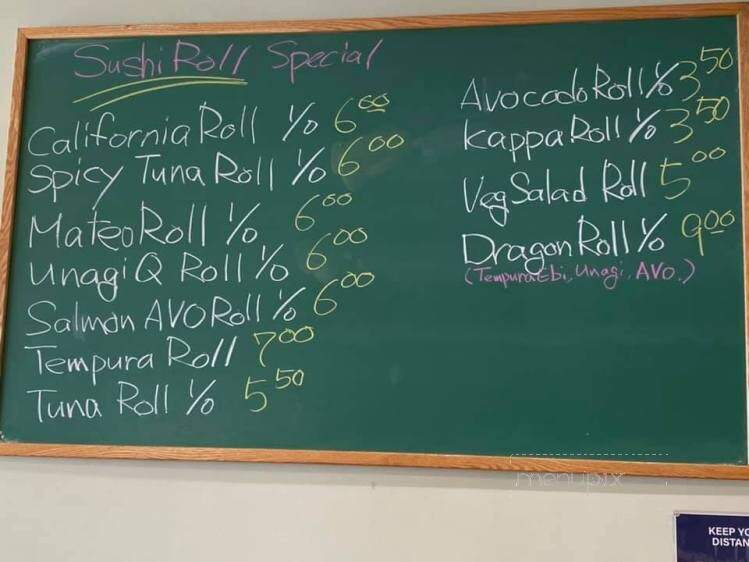 Sushi Roll Special
California Roll 1/0 6.00
Spicy Tuna Roll 1/0 6.00
Mateo Roll 1/0 6.00
Unagi Q Roll 1/0 6.00
Salmon AVO Roll 1/0 6.00
Tempura Roll 7.00
Tuna Roll 1/0 5.50
Avocado Roll 1/0 3.50
Kappa Roll 1/0 3.50
Veg Salad Roll 5.00
Dragon Roll 1/0 9.00
(Tempura Ebi, Unagi, AVO.)
menupix
KEEP YO
DISTAN